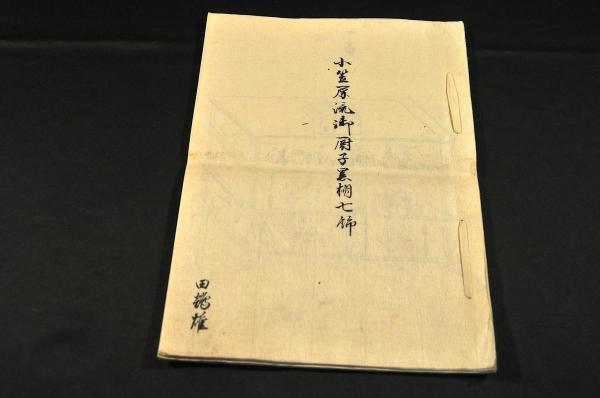 小笠原流御厨子黒棚七飾
田
雄